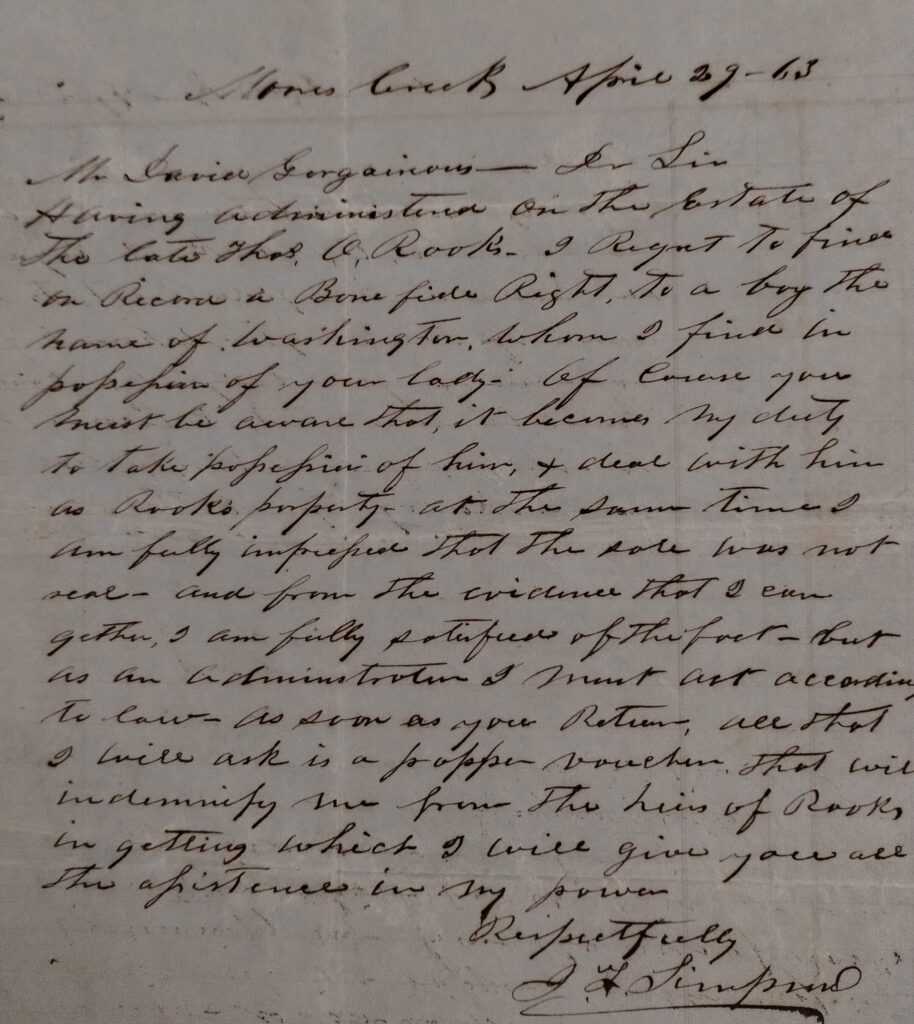 Moores Creek April 29 - 63
Mr David Gorgainous — Dr Sir
Having administerd on the Estate of
the late Thos. O. Rooks - I Regret to find
on Record a Bone fide Right, to a boy the
name of Washington, whom I find in
possession of your lady - Of Course you
must be aware that, it becomes my duty
to take possession of him, & deal with him
as Rooks porperty - at the same time I
am fully impressed that the sale was not
real - and from the evidence that I can
gether, I am fully satisfied of the fact - but
as an administrator I must act accordin
to law - as soon as you Return, all that
I will ask is a popper voucher, that will
indemnify me from the heirs of Rooks
in getting which I will give you all
the assistence in my power
Respectfully
J. F. Simpson